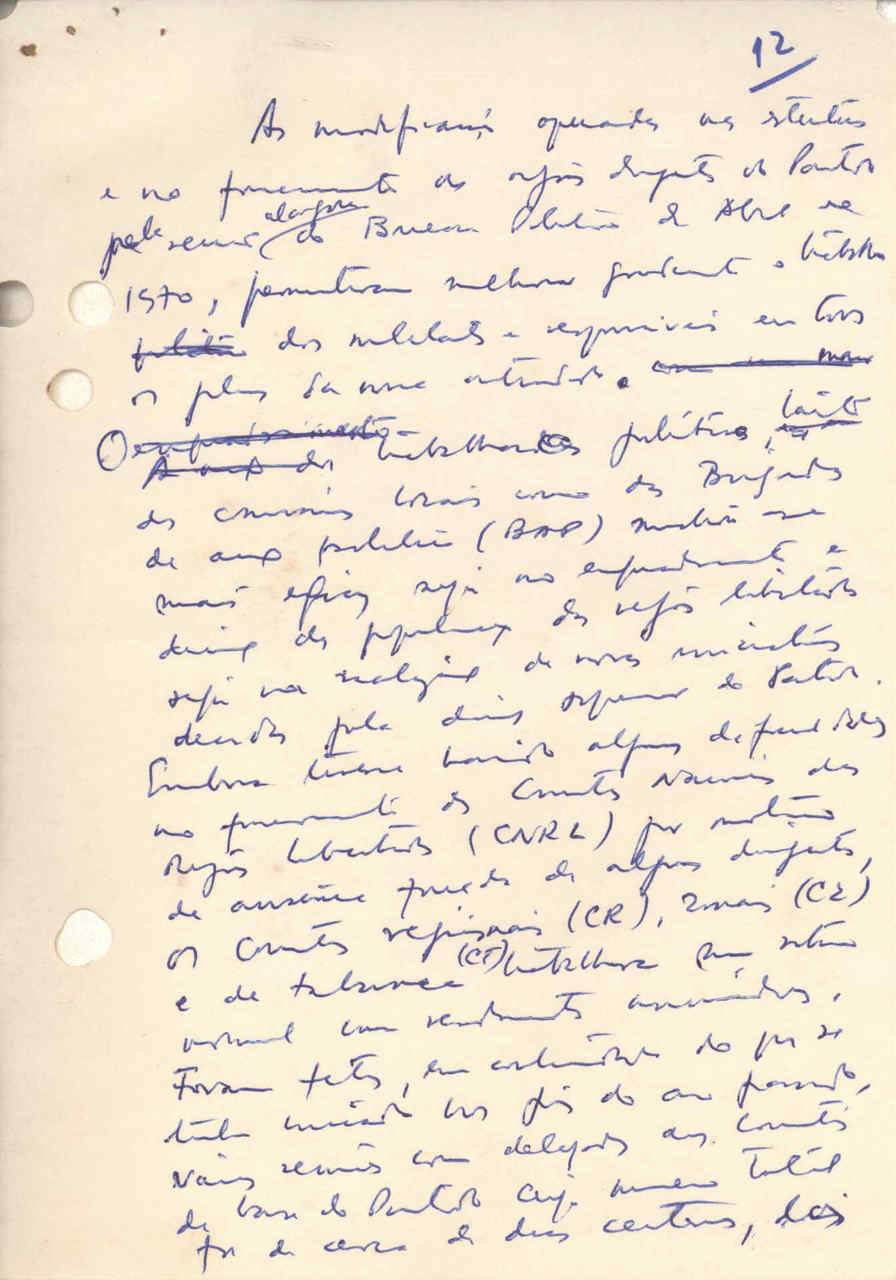 12
As modificações operadas nos estatutos
e no funcionamento dos orgãos dirigentes do Partido
pela reunião alargada do Bureau Politico de Abril de
1970, permitiram melhorar grandemente o trabalho
politico dos militantes e responsáveis em todos
os planos da nossa actividade.
O dos trabalhadores politicos, tanto
das comissões locais como das Brigadas
de acção politica (BAP) mostrou-se
mais eficaz seja no enquadramento e
direcção das populações das regiões libertadas
seja na realização de novas iniciativas
decididas pela direcção superior do Partido.
Embora tivesse havido algumas deficiências
no funcionamento dos Comités Nacionais das
Regiões Libertadas (CNRL) por motivo
de ausência forçada de alguns dirigentes,
os Comités regionais (CR), zonais (CZ)
e de tabanca (CT) trabalharam num ritmo
normal com rendimento
Foram feitas, em continuidade do que se
tinha iniciado nos fins do ano passado,
várias reuniões com delegados aos Comités
de base do Partido cujo numero total
foi de cerca de duas centenas, dois